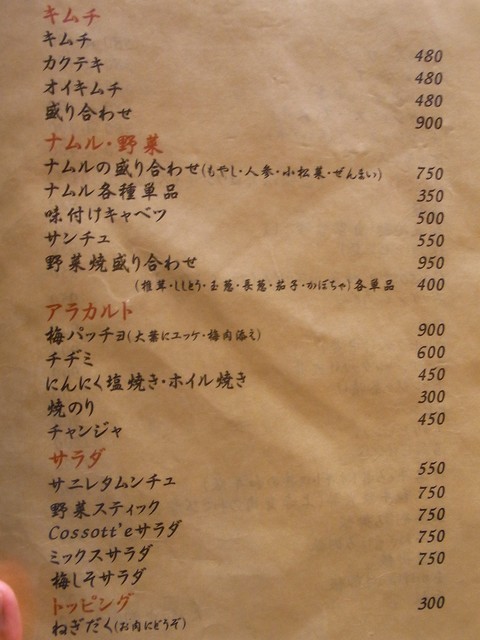 キムチ
キムチ 480
カクテキ 480
オイキムチ 480
盛り合わせ 900
ナムル・野菜
ナムルの盛り合わせ(もやし・人参・小松菜・ぜんまい) 750
ナムル各種単品 350
味付けキャベツ 500
サンチュ 550
野菜焼盛り合わせ 950
(椎茸・ししとう・玉葱・長葱・茄子・かぼちゃ)各単品 400
アラカルト
梅パッチョ(大葉にユッケ・梅肉添え) 900
チヂミ 600
にんにく塩焼き・ホイル焼き 450
焼のり 300
チャンジャ 450
サラダ
サニレタムンチュ 550
野菜スティック 750
Cossott'eサラダ 750
ミックスサラダ 750
梅しそサラダ 750
トッピング
ねぎだく(お肉にどうぞ) 300